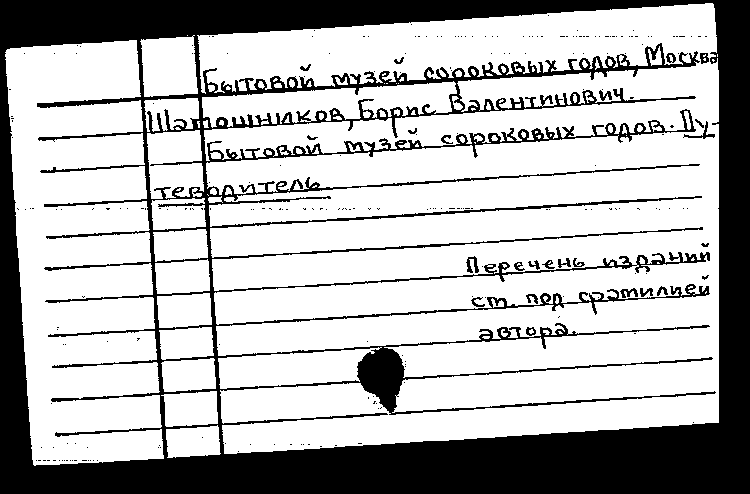 Бытовой музей сороковых годов, Москва
Шапошников, Борис Валентинович.
Бытовой музей сороковых годов. Пу-
теводитель.
Перечень изданий
см. под фамилией
автора.